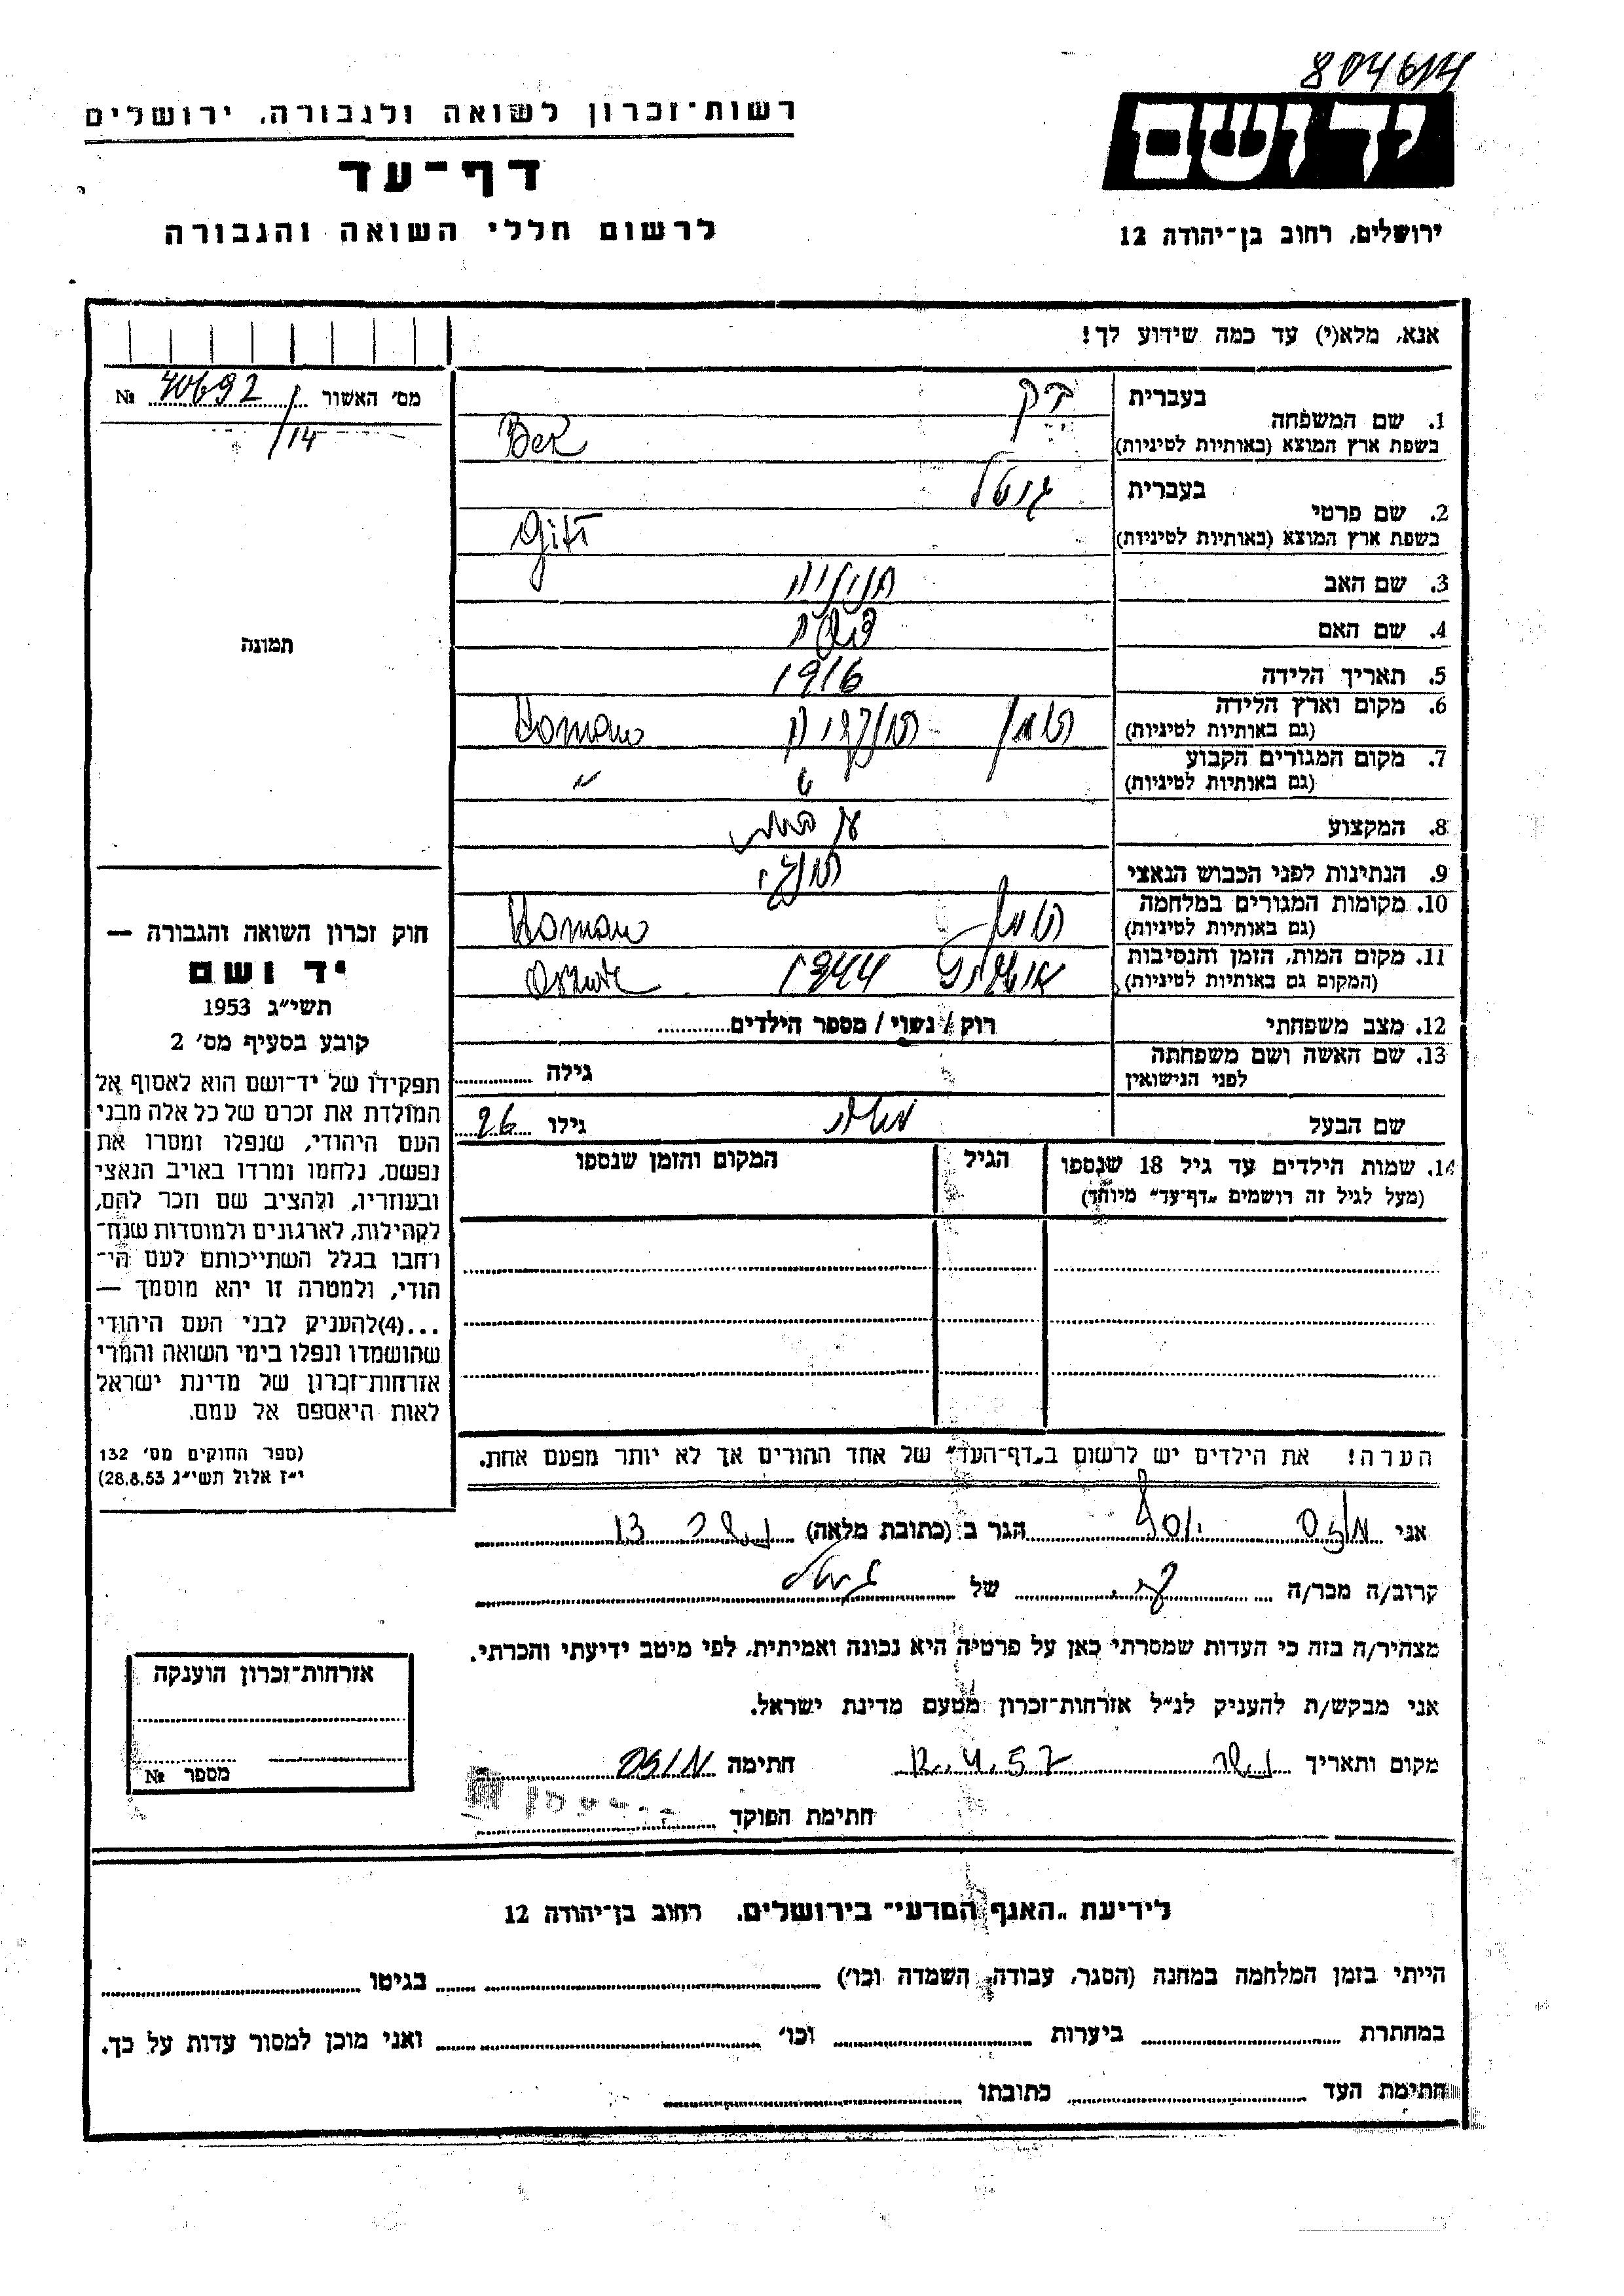 804614
יד ושם
ירושלים, רחוב בן־יהודה 12
רשות־זכרון לשואה ולגבורה, ירושלים
דף־עד
לרשום חללי השואה והגבורה
אנא, מלא(י) עד כמה שידוע לך!
מס׳ האשור 40692 №
/14
תמונה
חוק זכרון השואה והגבורה —
יד ושם
תשי״ג 1953
קובע בסעיף מס׳ 2
תפקידו של יד־ושם הוא לאסוף אל
המולדת את זכרם של כל אלה מבני
העם היהודי, שנפלו ומסרו את
נפשם, נלחמו ומרדו באויב הנאצי
ובעוזריו, ולהציב שם וזכר להם,
לקהילות, לארגונים ולמוסדות שנח־
רחבו בגלל השתייכותם לעם הי־
הודי, ולמטרה זו יהא מוסמך —
...(4)להעניק לבני העם היהודי
שהושמדו ונפלו בימי השואה והמרי
אזרחות־זכרון של מדינת ישראל
לאות היאספם אל עמם.
(ספר החוקים מס׳ 132
י״ז אלול תשי״ג 28.8.53)
1. שם המשפחה
בעברית בק
בשפת ארץ המוצא (באותיות לטיניות) Bek
2. שם פרטי
בעברית גיטל
בשפת ארץ המוצא (באותיות לטיניות) Git
3. שם האב
4. שם האם
5. תאריך הלידה 1916
6. מקום וארץ הלידה
(גם באותיות לטיניות)
7. מקום המגורים הקבוע
(גם באותיות לטיניות) ״ ״
8. המקצוע
9. הנתינות לפני הכבוש הנאצי
10. מקומות המגורים במלחמה
(גם באותיות לטיניות)
11. מקום המות, הזמן והנסיבות 1944
(המקום גם באותיות לטיניות)
12. מצב משפחתי רוק / נשוי / מספר הילדים
13. שם האשה ושם משפחתה
לפני הנישואין גילה
שם הבעל גילו 26
14. שמות הילדים עד גיל 18 שנספו הגיל המקום והזמן שנספו
(מעל לגיל זה רושמים „דף־עד״ מיוחד)
הערה! את הילדים יש לרשום ב„דף־העד״ של אחד ההורים אך לא יותר מפעם אחת.
אני יוסף הגר ב (כתובת מלאה) נשר 13
קרוב/ה מכר/ה של גיטל
מצהיר/ה בזה כי העדות שמסרתי כאן על פרטיה היא נכונה ואמיתית, לפי מיטב ידיעתי והכרתי.
אני מבקש/ת להעניק לנ״ל אזרחות־זכרון מטעם מדינת ישראל.
מקום ותאריך נשר 12.4.57 חתימה
חתימת הפוקד
אזרחות־זכרון הוענקה
מספר №
לידיעת „האגף המדעי״ בירושלים, רחוב בן־יהודה 12
הייתי בזמן המלחמה במחנה (הסגר, עבודה, השמדה וכו׳) בגיטו
במחתרת ביערות וכו׳ ואני מוכן למסור עדות על כך.
חתימת העד כתובתו